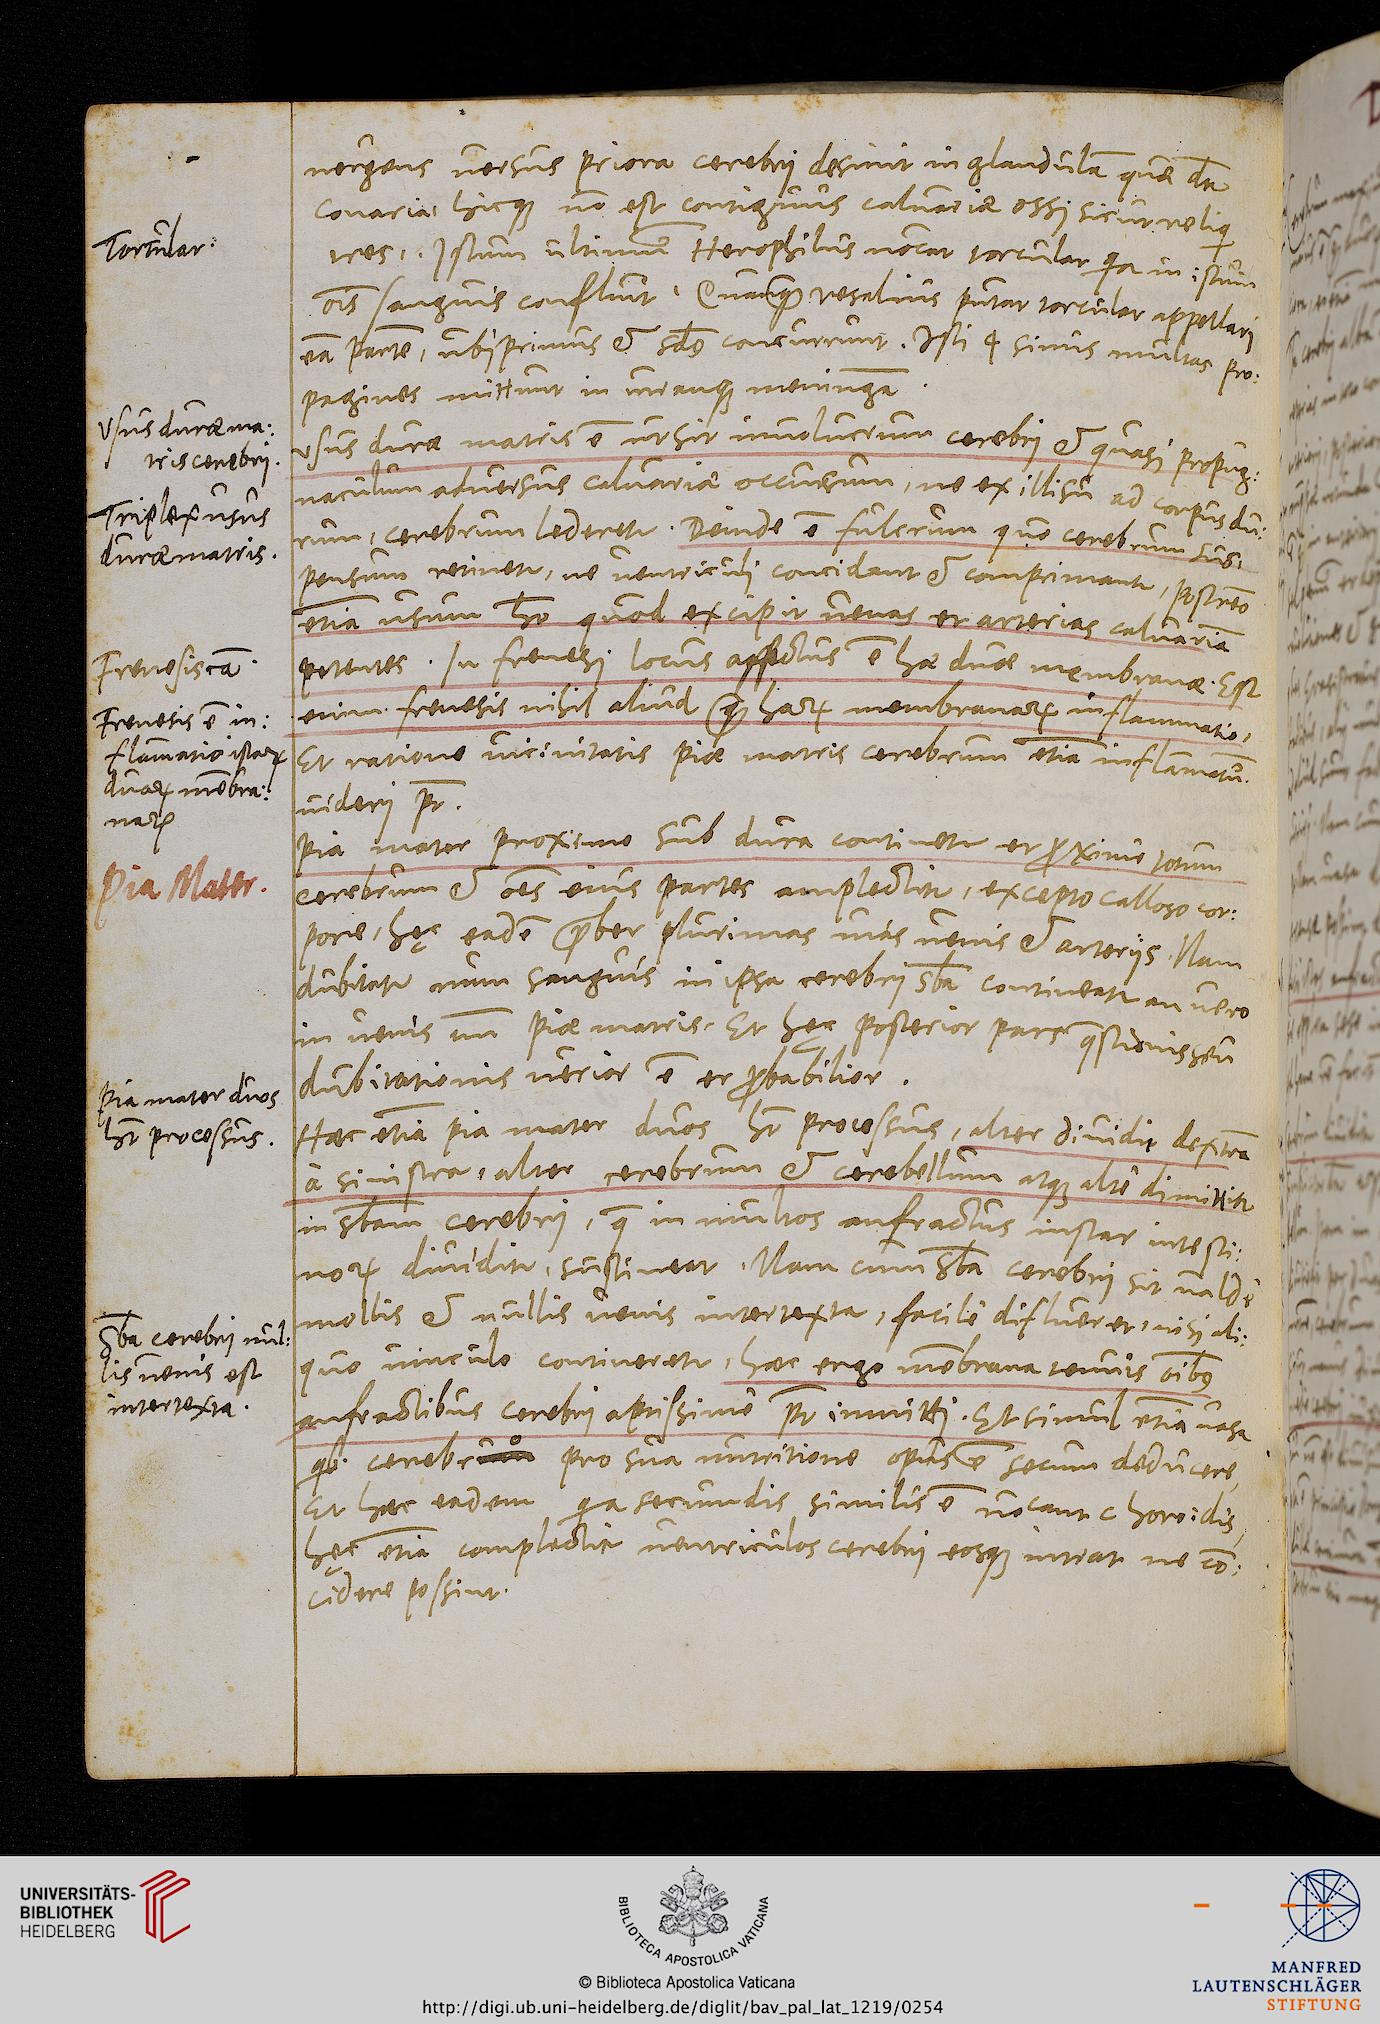 Torcular:
Vsus durae ma:
tris cerebrj.
Triplex usus
durae matris.
Frenesis cā.
Frenesis ē in:
flāmatio istarꝝ
duarꝝ mēbra:
narꝝ
Pia Mater.
Pia mater duos
hr̄t processus.
Sb̄a cerebrij nul:
lis uenis est
intertexta.
uergens uersus priora cerebrij desinit in glandulā quae dr̄
conaria, hicqꝫ nō est contiguus caluariae ossi sicut reliq
tres. Istum ultimum Herophilus uocat torcular quia in istum
oīs sanguis confluit. Quanqꝫ Vesalius putat torcular appellarj
eā partē, ubj primus & scd̄s concurrunt. Istj 4 sinus multas pro:
pagines mittunt in utranqꝫ meningā.
Vsus durae matris ē ut sit inuolucrum cerebrj & quasj propug:
naculum aduersus caluariae occursum, ne ex illisu ad corpus du:
rum, cerebrum lederetr. Deinde ē fulcrum quo cerebrum sus:
pensum retinetr, ne uentriculj concidant & comprimantr, postremo
etiā usum hr̄ quod excipit uenas et arterias caluariā
petentes. In frenesj locus affectus ē hae duae membranae. Est
enim frenesis nihil aliud quā harꝝ membranarꝝ inflammatio,
Et ratione uicinitatis piae matris cerebrum etiā inflamatū
uiderij pt̄.
Pia mater proxime sub dura continetr et proxime totum
cerebrum & oēs eius partes amplectitr, excepto calloso cor:
pore, hęc eadē praebet plurimas uias uenis & arterijs. Nam
dubitatr num sanguis in ipsa cerebrij sb̄a contineatr an uero
in uenis piae matris. Et hęc posterior pars quaestionis seu
dubitationis uerior ē et probabilior.
Haec etiā pia mater duos hr̄t processus, alter diuidit dextrā
à sinistra, alter cerebrum & cerebellum atqꝫ altè dimittitr
in sb̄am cerebrij, quae in multos anfractus instar intesti:
norꝝ diuiditr, sustineat. Nam cum sb̄a cerebrij sit ualdè
mollis & nullis uenis intertexta, facilè diflueret, nisj ali:
quo uinculo contineretr, haec ergo mēbrana tenuis oībꝫ
anfractibus cerebrij aptissimè pt̄ immittj. Et simul etiā uasa
qb. cerebro pro sua nutritione opus ē secum deducere,
Et haec eadem quia secundis similis ē uocant choroidis,
hęc etiā complectitr uentriculos cerebrij eosqꝫ intrat ne cō:
cidere possint.
UNIVERSITÄTS-
BIBLIOTHEK
HEIDELBERG
BIBLIOTECA APOSTOLICA VATICANA
© Biblioteca Apostolica Vaticana
http://digi.ub.uni-heidelberg.de/diglit/bav_pal_lat_1219/0254
MANFRED
LAUTENSCHLÄGER
STIFTUNG